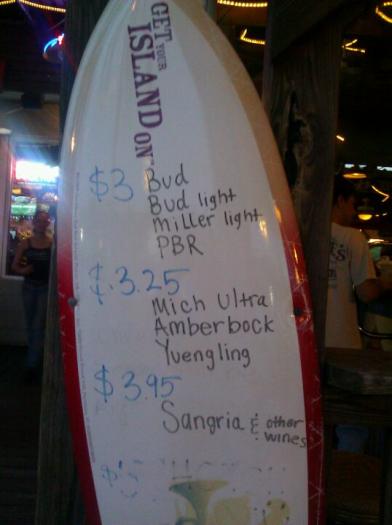 GET YOUR
ISLAND ON
$3 Bud
Bud light
Miller light
PBR
$3.25
Mich Ultra
Amberbock
Yuengling
$3.95
Sangria & other
wines